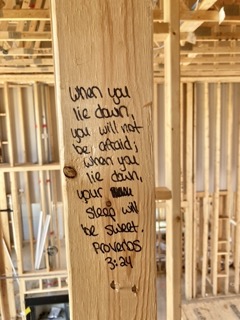 when you
lie down,
you will not
be afraid;
when you
lie down,
your
sleep will
be sweet.
Proverbs
3:24